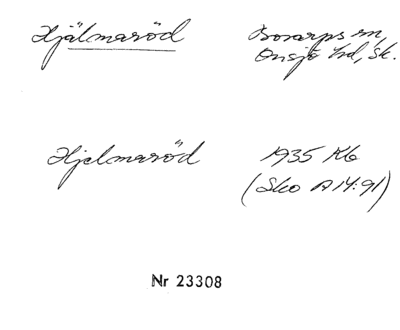 Hjälmaröd Bosarps sn,
Onsjö hd, Sk.
Hjelmaröd 1935 Kb
(Sko A14:91)
Nr 23308